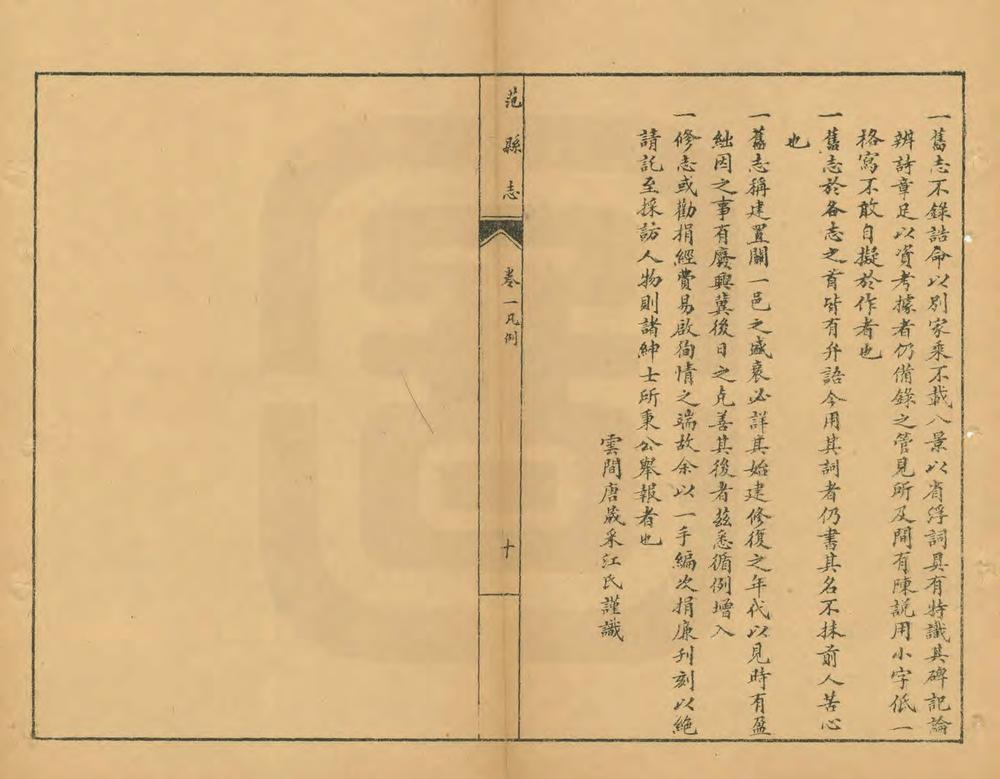 一舊志不錄誥命以別家乘不載八景以省浮詞具有特識其碑記論
辨詩章足以資考據者仍備錄之管見所及間有陳説用小字低一
格寫不敢自擬於作者也
一舊志於各志之首皆有弁語今用其詞者仍書其名不抹前人苦心
也
一舊志稱建置關一邑之盛衰必詳其始建修復之年代以見時有盈
絀因之事有廢興冀後日之克善其後者茲悉循例增入
一修志或勸捐經費易啟狥情之端故余以一手編次捐廉刋刻以絶
請託至採訪人物則諸紳士所秉公舉報者也
雲間唐晟采江氏謹識
范縣志
卷一凡例
十